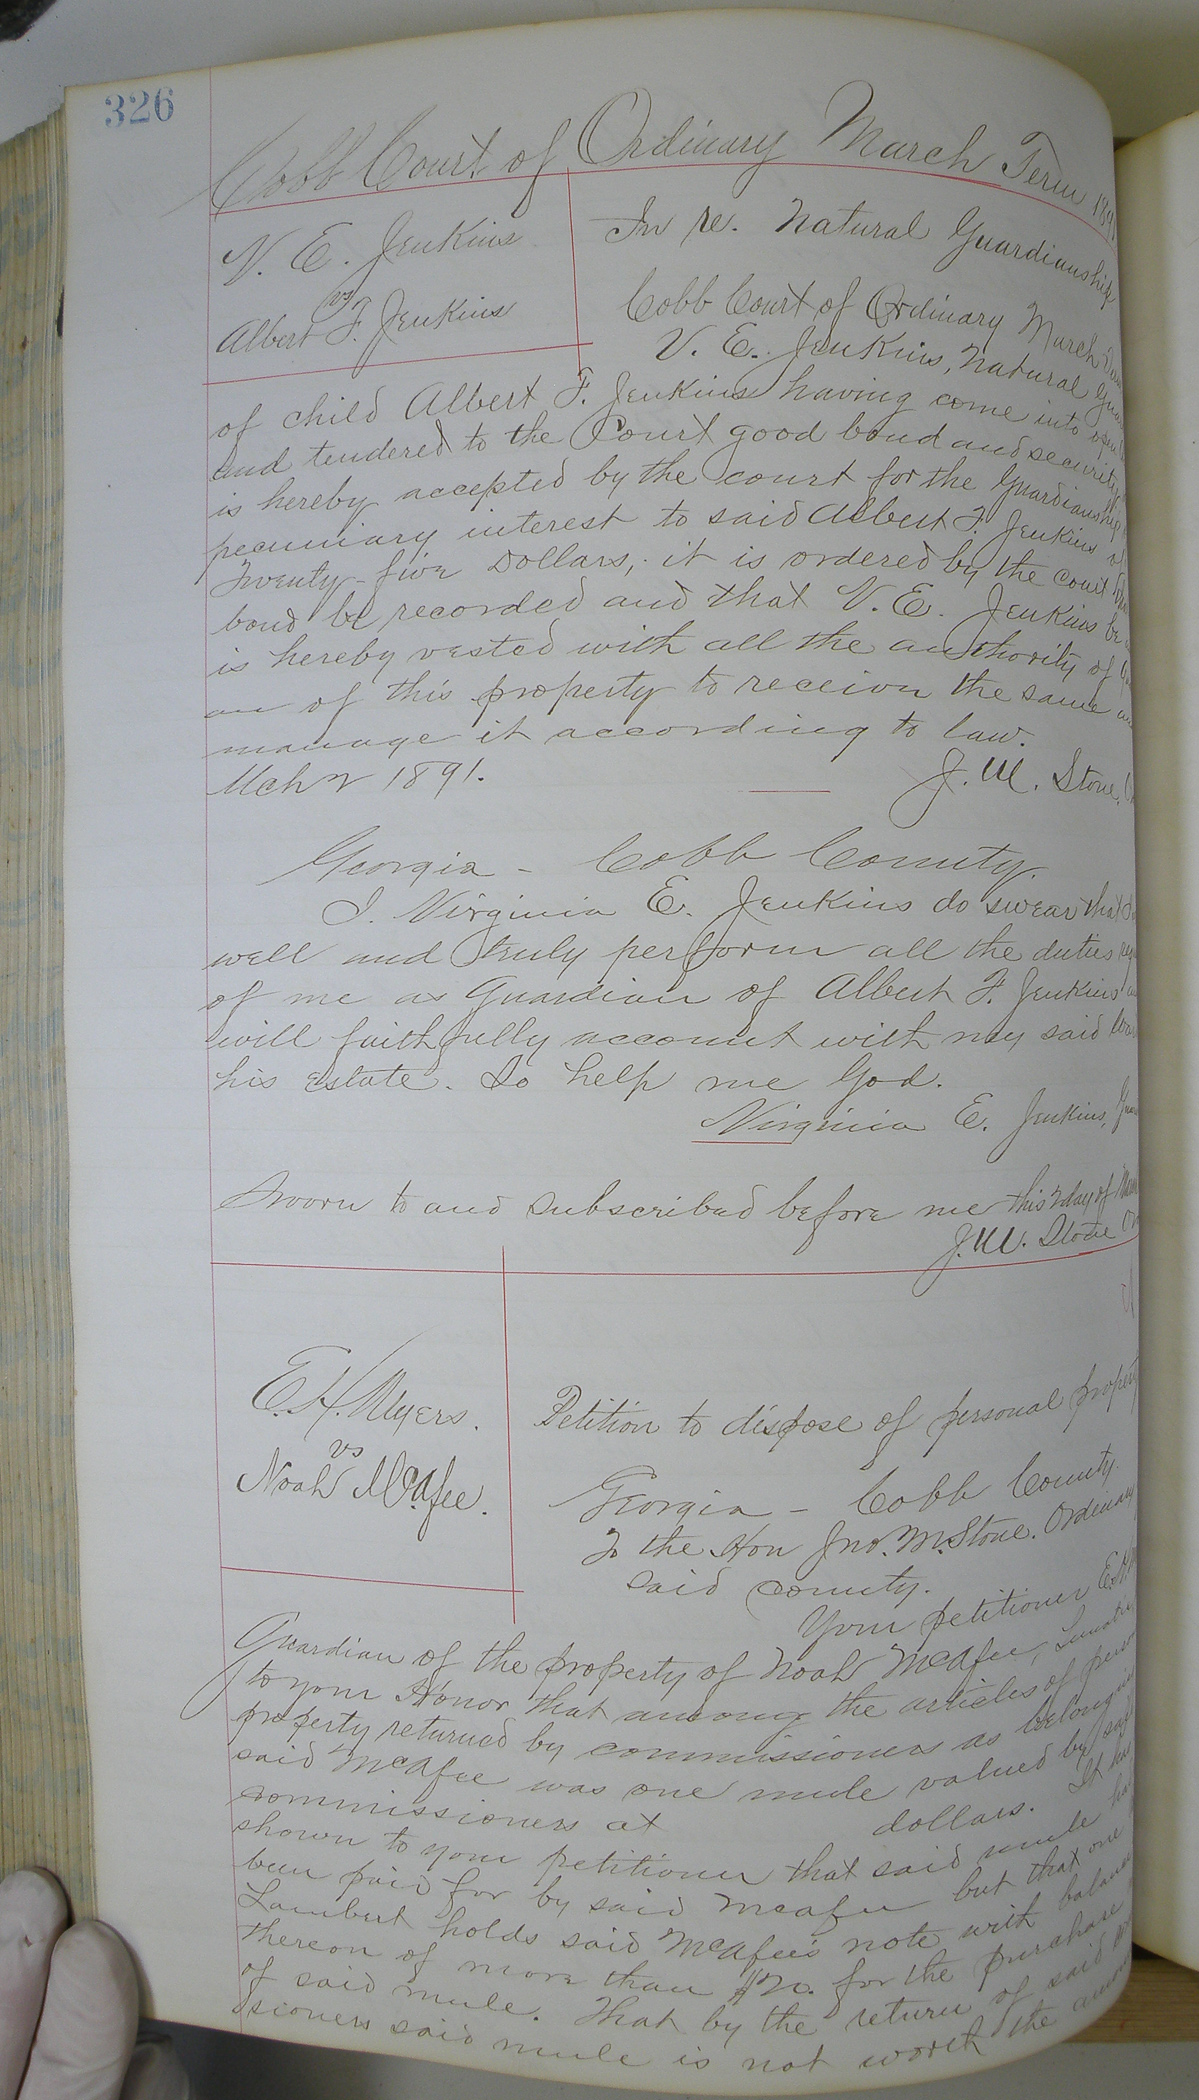 326
Cobb Court of Ordinary March Term 189
V. E. Jenkins
vs
Albert F. Jenkins
In re. Natural Guardianship
Cobb Court of Ordinary March
V. E. Jenkins, Natural
of child Albert F. Jenkins having come into open
and tendered to the Court good bond and security
is hereby accepted by the court for the Guardianship
pecuniary interest to said Albert F. Jenkins of
Twenty-five Dollars, it is ordered by the court
bond be recorded and that V. E. Jenkins be
is hereby vested with all the authority of
an of this property to receive the same
manage it according to law.
Mch 2 1891.
J. M. Stone,
Georgia - Cobb County.
I. Virginia E. Jenkins do swear that
well and truly perform all the duties
of me as Guardian of Albert F. Jenkins
will faithfully account with my said
his estate. So help me God.
Virginia E. Jenkins,
Sworn to and subscribed before me this 2 day of
J. M. Stone
E. H. Myers.
vs
Noah McAfee.
Petition to dispose of personal
Georgia - Cobb County.
To the Hon Jno. M. Stone. Ordinary
said county.
Your petitioner
Guardian of the property of Noah McAfee,
to your Honor that among the articles of
property returned by commissioners as
said McAfee was one mule valued by
commissioners at dollars. It
shown to your petitioner that said mule
been paid for by said McAfee but that one
Lambert holds said McAfee's note with balance
thereon of more than for the purchase
of said mule. That by the return of said
sioners said mule is not worth the